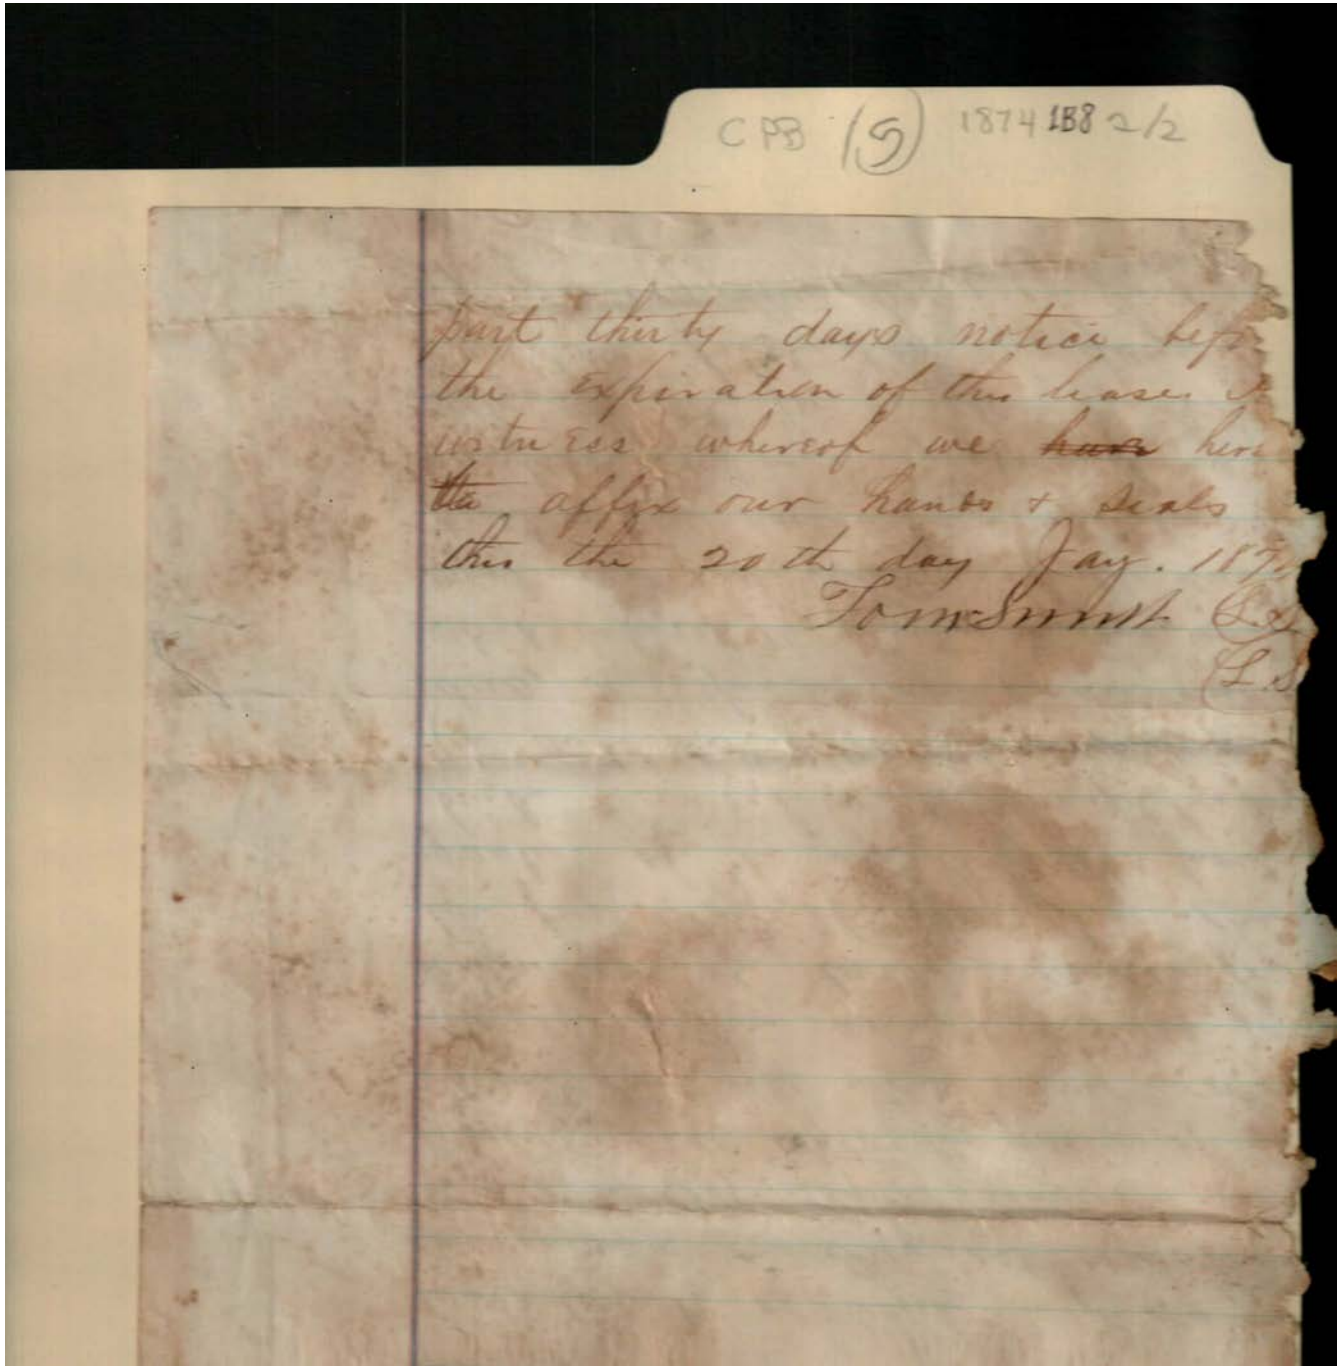 CPB (5) 1874 1B8 2/2
part thirty days notice bef
the Expiration of this lease
witness whereof we have here
affix our hands & seals
this the 20th day Jay. 187
Tom Smith (L.S
(L.S